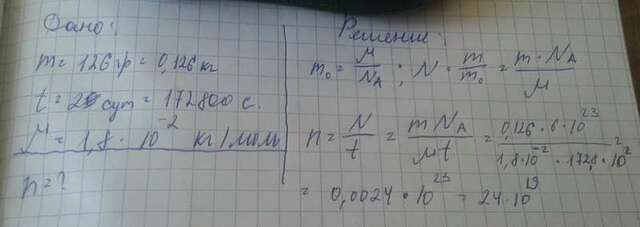 Дано:
m = 126 гр = 0,126 кг
t = 2 сут = 172800 с.
M = 1,8 · 10⁻² кг/моль
n = ?
Решение:
m₀ = M/N_A ; N = m/m₀ = m·N_A/M
n = N/t = m N_A/Mt = 0,126 · 6 · 10²³/1,8·10⁻² · 1728 · 10² =
= 0,0024 · 10²³ = 24·10¹⁹